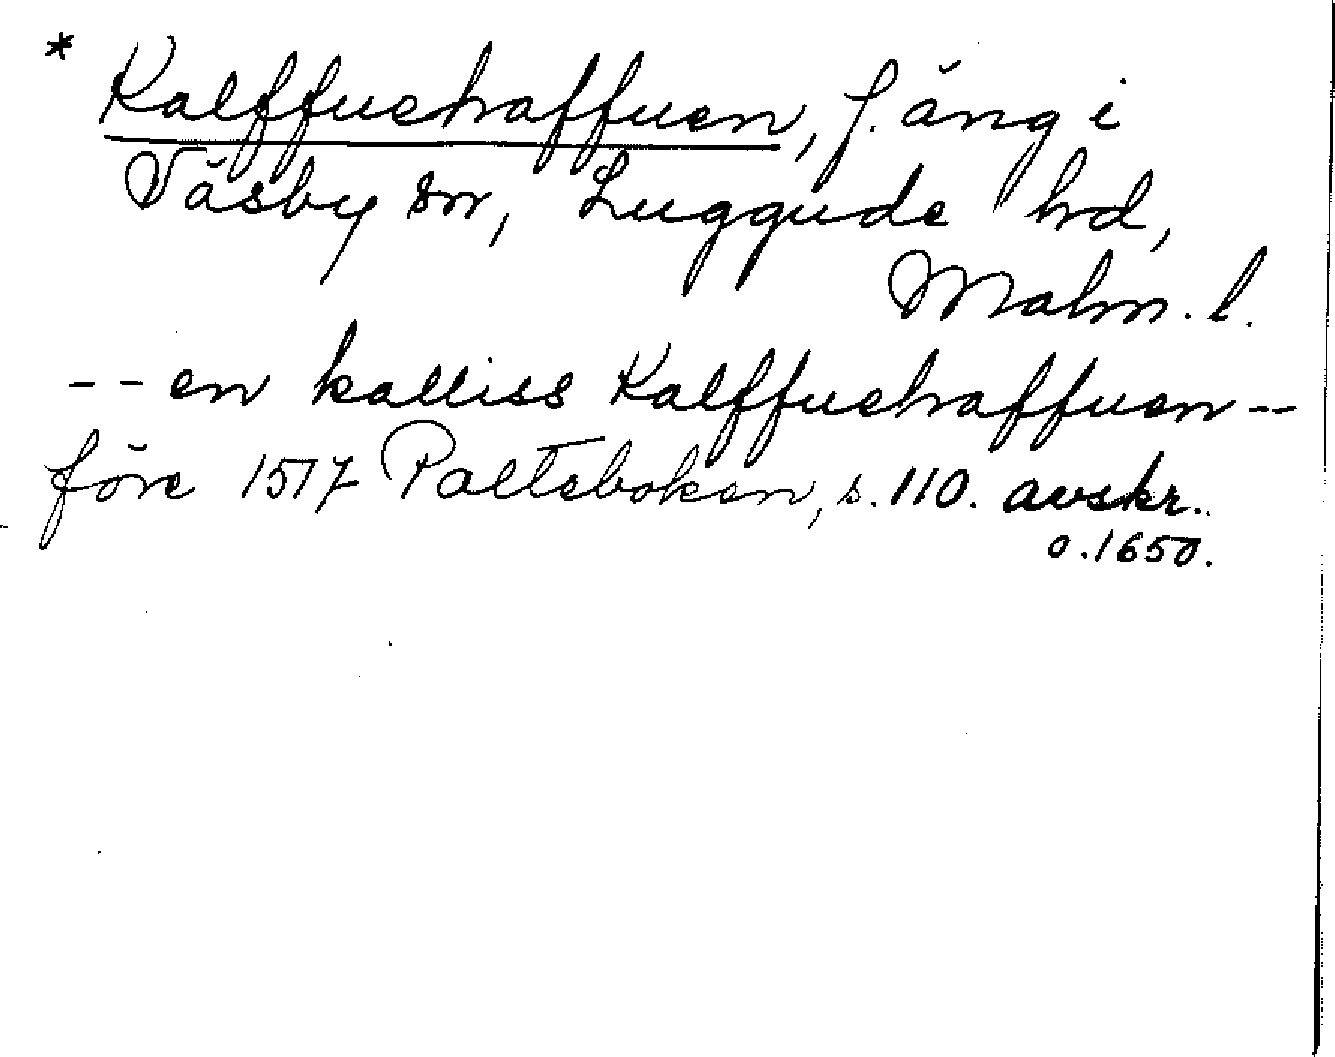 * Kalffuehaffuen, f. äng i
Väsby sn, Luggude hd,
Malm. l.
-- en kalliss Kalffuehaffuen --
före 1517 Palteboken, s. 110. avskr.
o. 1650.